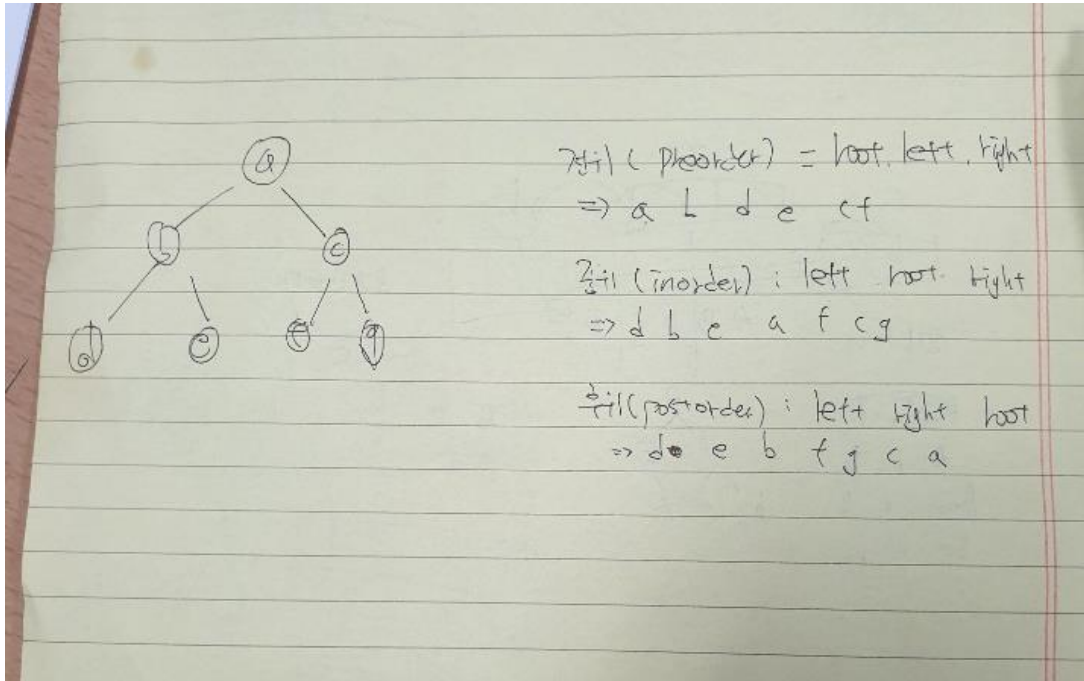 a
b c
d e f g
전위 ( preorder) = root. left. right
=> a b d e c f
중위 (inorder) : left root. right
=> d b e a f c g
후위(postorder) : left right root
=> d e b f g c a